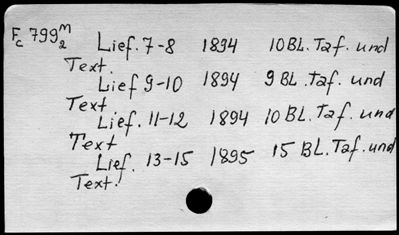 Fc 799 m/2 Lief. 7-8 1894 10 BL. Taf. und
Text.
Lief 9-10 1894 9 BL. Taf. und
Text
Lief. 11-12 1894 10 BL. Taf. und
Text
Lief. 13-15 1895 15 BL. Taf. und
Text.